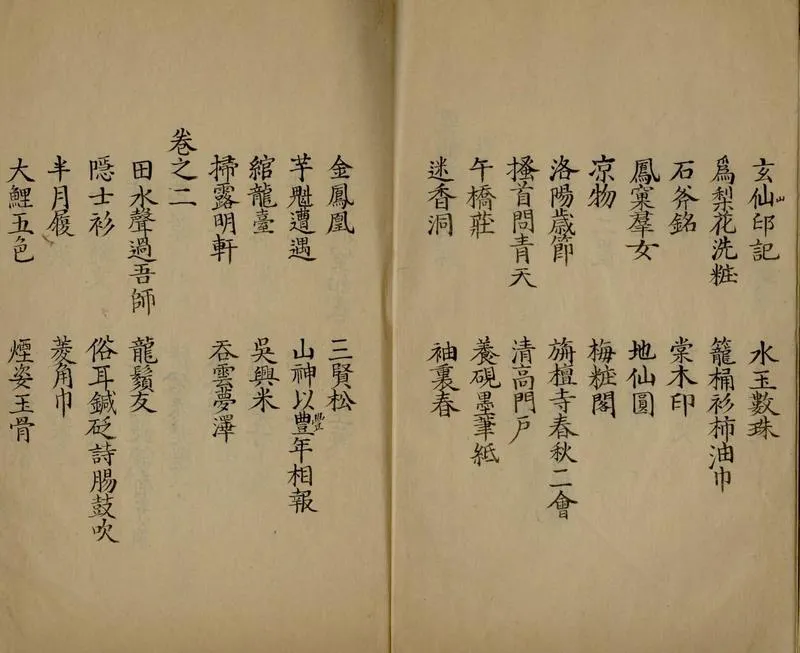 玄仙印記　水玉數珠
爲梨花洗粧　籠桶衫柿油巾
石斧銘　棠木印
鳳窠羣女　地仙圓
凉物　梅粧閣
洛陽歲節　旃檀寺春秋二會
搔首問青天　清高門戸
午橋莊　養硯墨筆紙
迷香洞　袖裏春
金鳳凰　三賢松
芋魁遭遇　山神以豊年相報
綰龍臺　吳興米
掃露明軒　吞雲夢澤
卷之二
田水聲過吾師　龍鬚友
隱士衫　俗耳鍼砭詩腸鼓吹
半月履　菱角巾
大鯉五色　煙姿玉骨